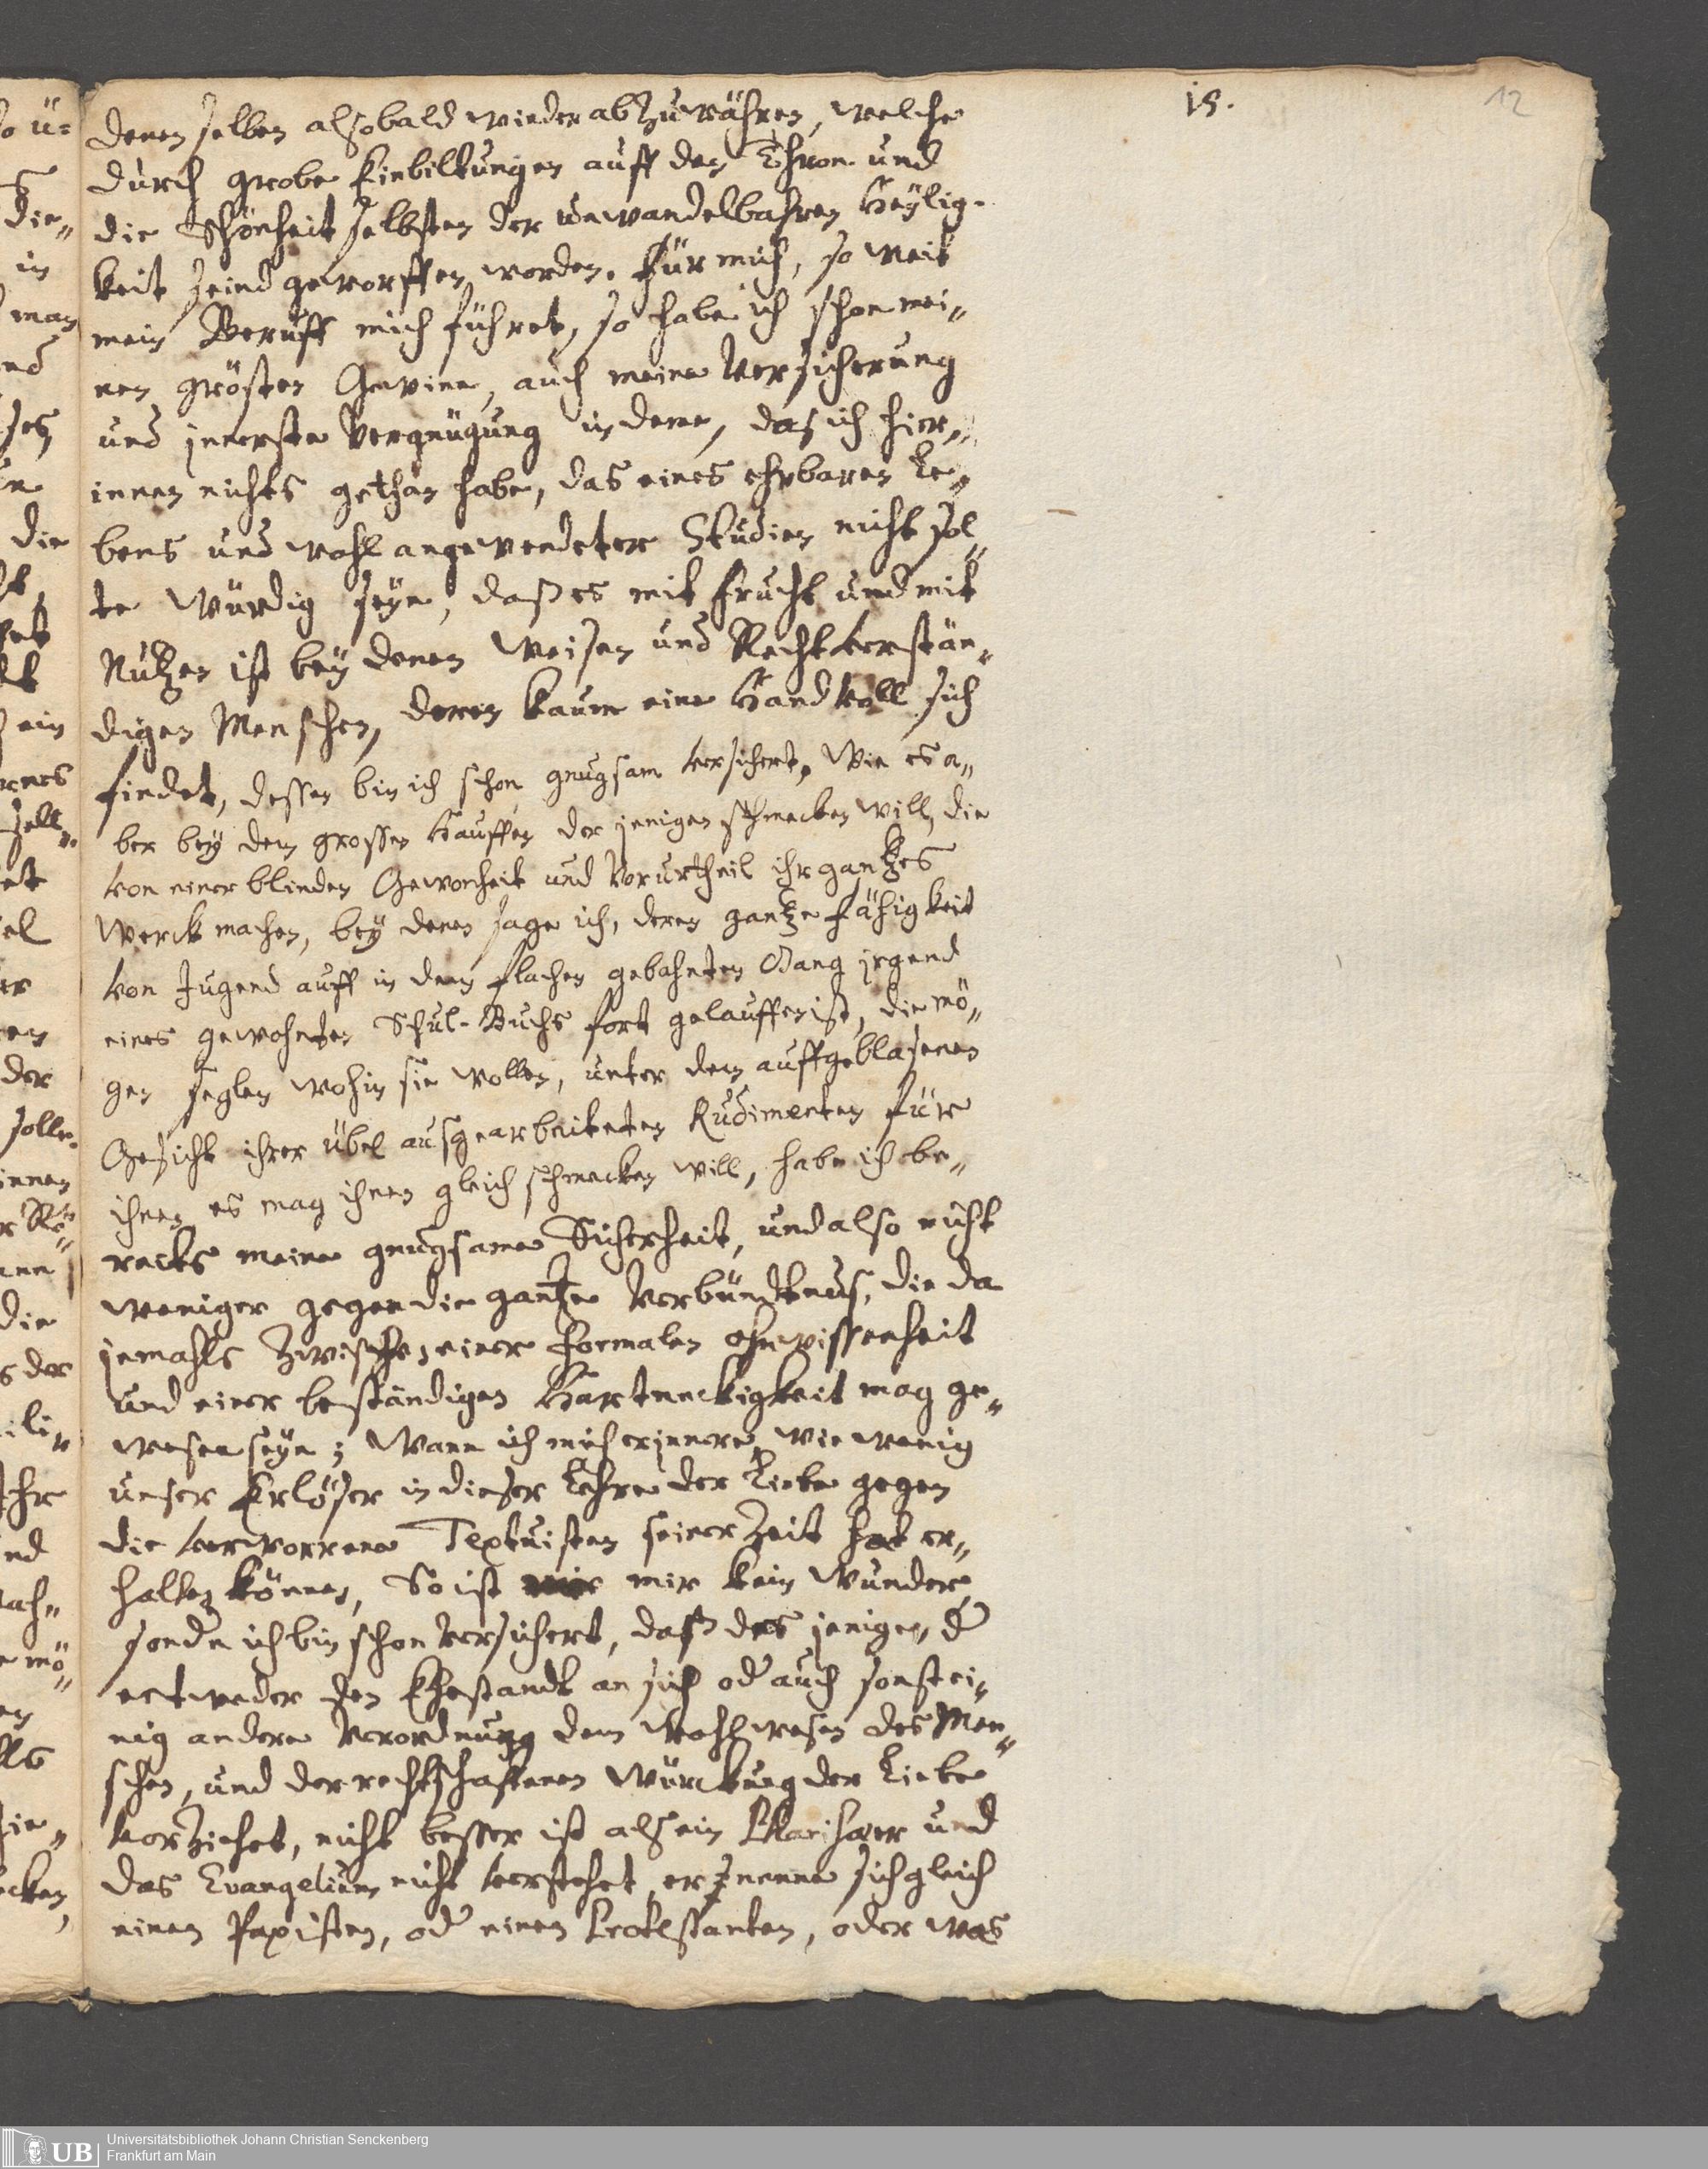 15.
12
denenselben alsobald wieder abzuwähren, welche
durch grobe Einbildungen auff den Thron und
die Schönheit selbsten der unwandelbahren Heÿlig-
keit seind geworffen worden. Für mich, so weit
mein Beruff mich führet, so habe ich schon mei„
nen grösten Gewinn, auch meine Versicherung
und jnnerste Vergnügung in deme, das ich hier„
innen nichts gethan habe, das eines ehrbaren Le„
bens und wohl angewendeter Studien nicht sol„
te würdig seÿn, daß es mit Frucht und mit
Nutzen ist beÿ denen Weisen und Rechtverstän„
digen Menschen, deren kaum eine Handvoll sich
findet, dessen bin ich schon gnugsam versichert. Wie es a„
ber beÿ dem grossen Hauffen der jenigen schmecken will, die
von einer blinden Gewonheit und Vorurtheil ihr gantzes
Werck machen, beÿ denen sage ich, deren gantze Fähigkeit
von Jugend auff in dem flachen gebahnten Gang jrgend
eines gewohnten Schul-Buchs fort gelauffen ist, die mö„
gen seglen wohin sie wollen, unter dem auffgeblasenen
Gesicht ihrer übel ausgearbeiteten Rudimenten für
ihnen es mag ihnen gleich schmecken will, habe ich be„
reits meine gnugsame Sicherheit, und also nicht
weniger gegen die gantze Verbündtnus, die da
jemahls zwischen einer formalen Ohnwissenheit
und einer beständigen Hartneckigkeit mag ge„
wesen seÿn; Wann ich mich erjnnere, wie wenig
unser Erlöser in dieser Lehre der Liebe gegen
die verworrene Textuisten seiner Zeit hat er„
halten können, So ist mir kein Wunder,
sondn ich bin schon versichert, daß der jenige, d
entweder den Ehestandt an sich od auch sonst ei„
nig andere Verordnung dem Wohlwesen des Men„
schen, und der rechtschaffenen Würckung der Liebe
vorziehet, nicht besser ist als ein Phariseer und
das Evangelium nicht verstehet, er nenne sich gleich
einen Papisten, od einen Protestanten, oder was
UB Universitätsbibliothek Johann Christian Senckenberg
Frankfurt am Main